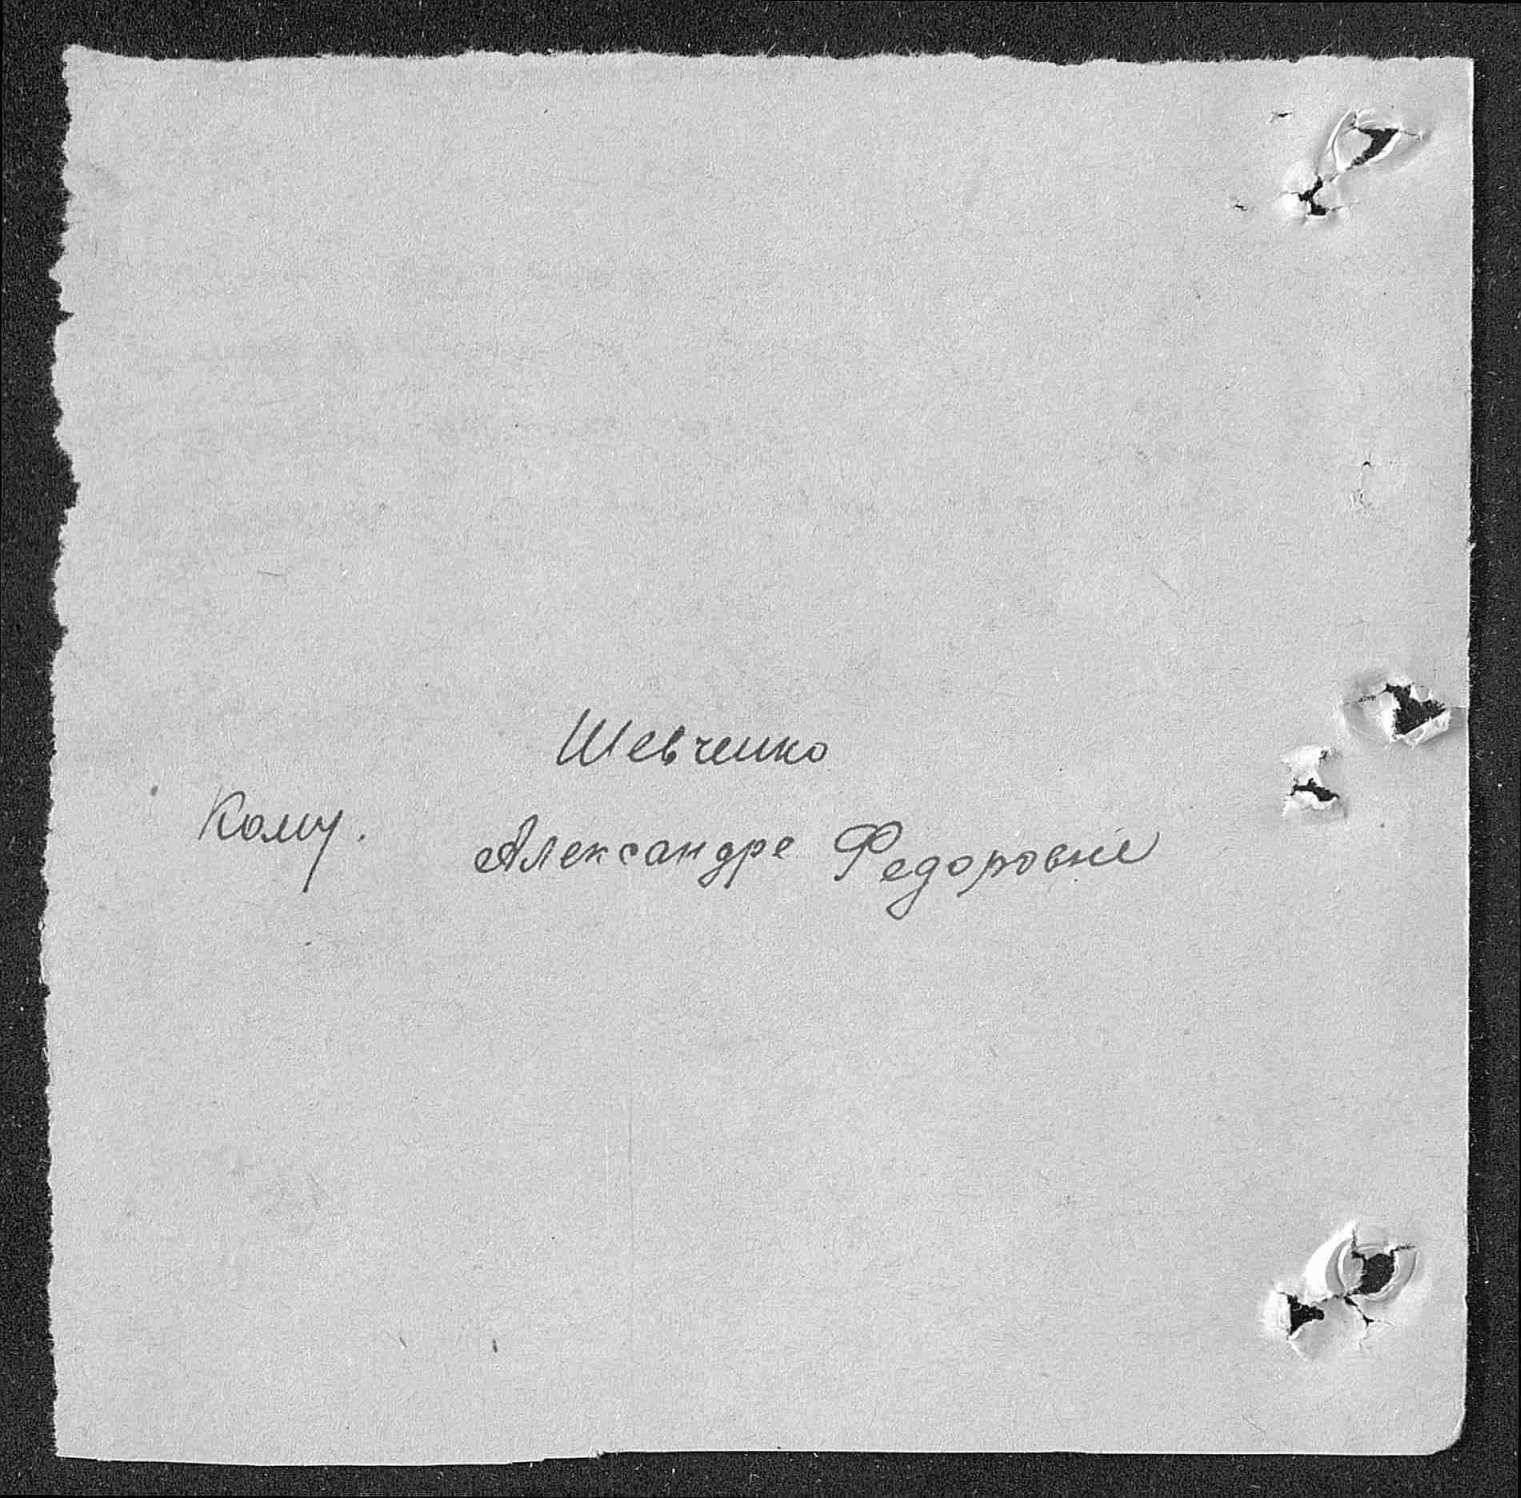 Шевченко
Кому.
Александре Федоровне